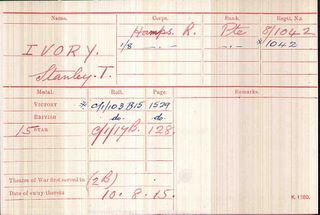 Name. Corps. Rank. Regtl. No.
IVORY. Hamps. R. Pte 8/1042
Stanley. T. 1/8 —"— —"— */1042
Medal. Roll. Page. Remarks.
VICTORY * O/1/103 B15 1529
BRITISH do. do.
15 STAR O/1/17B. 128.
Theatre of War first served in (2B)
Date of entry therein 10. 8. 15.
K. 1380.